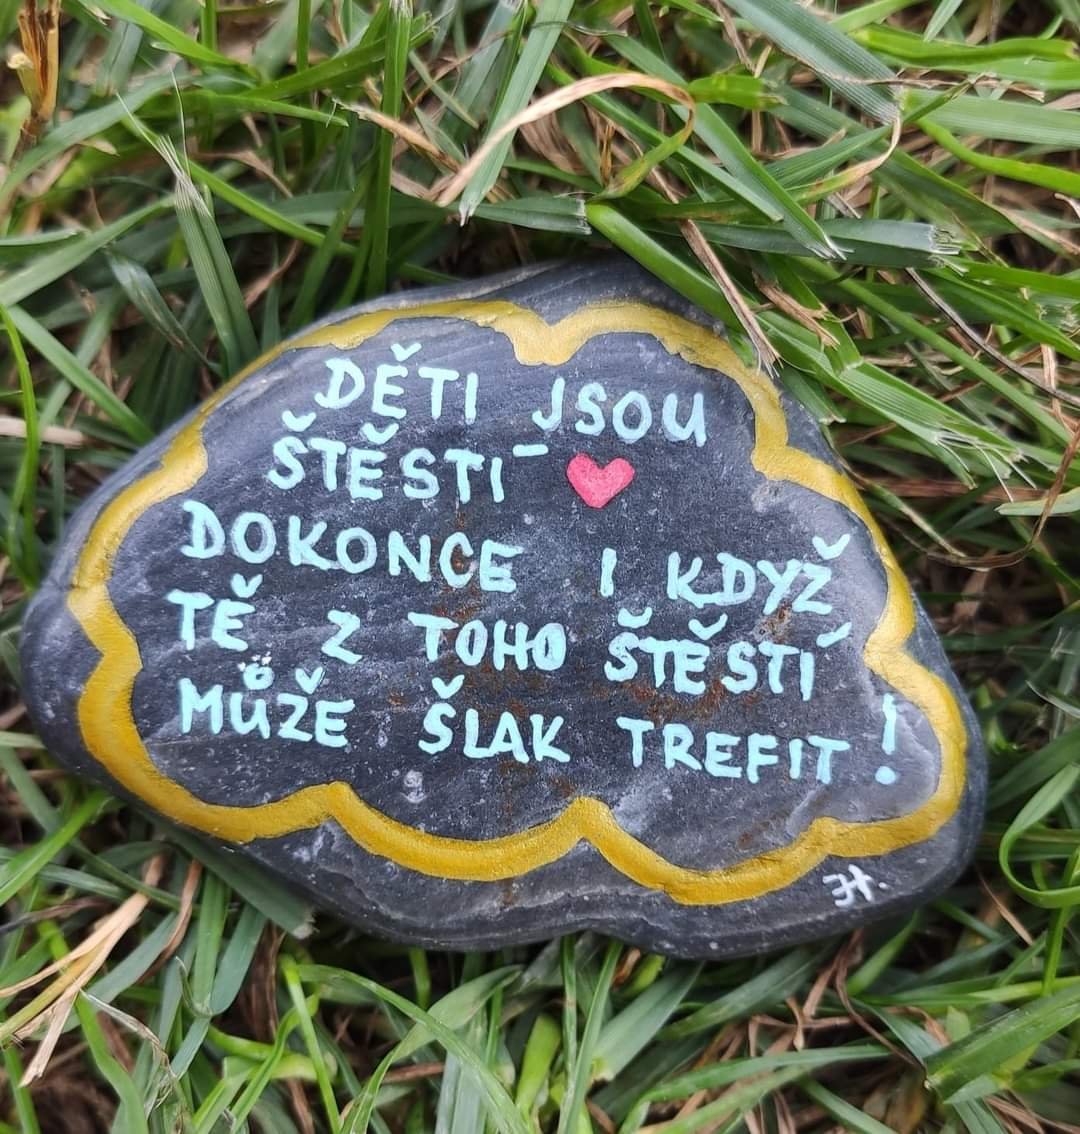 DĚTI JSOU
ŠTĚSTÍ
DOKONCE I KDYŽ
TĚ Z TOHO ŠTĚSTÍ
MŮŽE ŠLAK TREFIT!
JH.